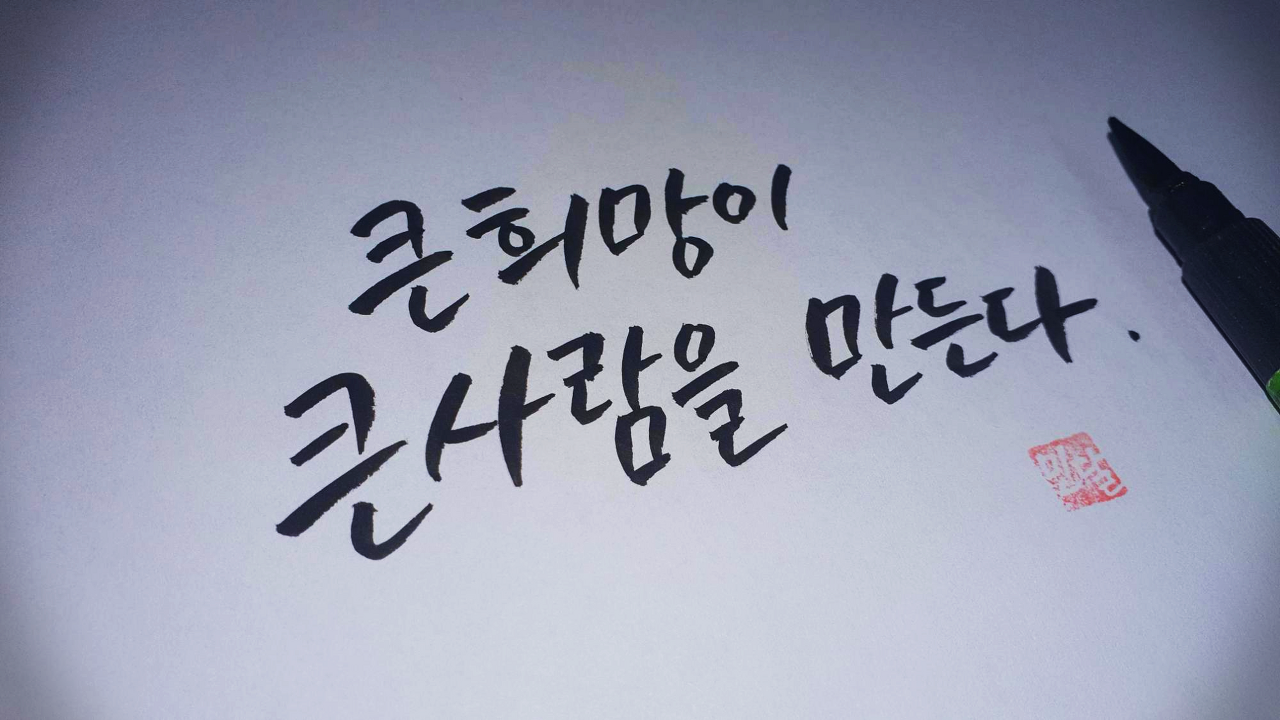 큰희망이
큰사람을 만든다.